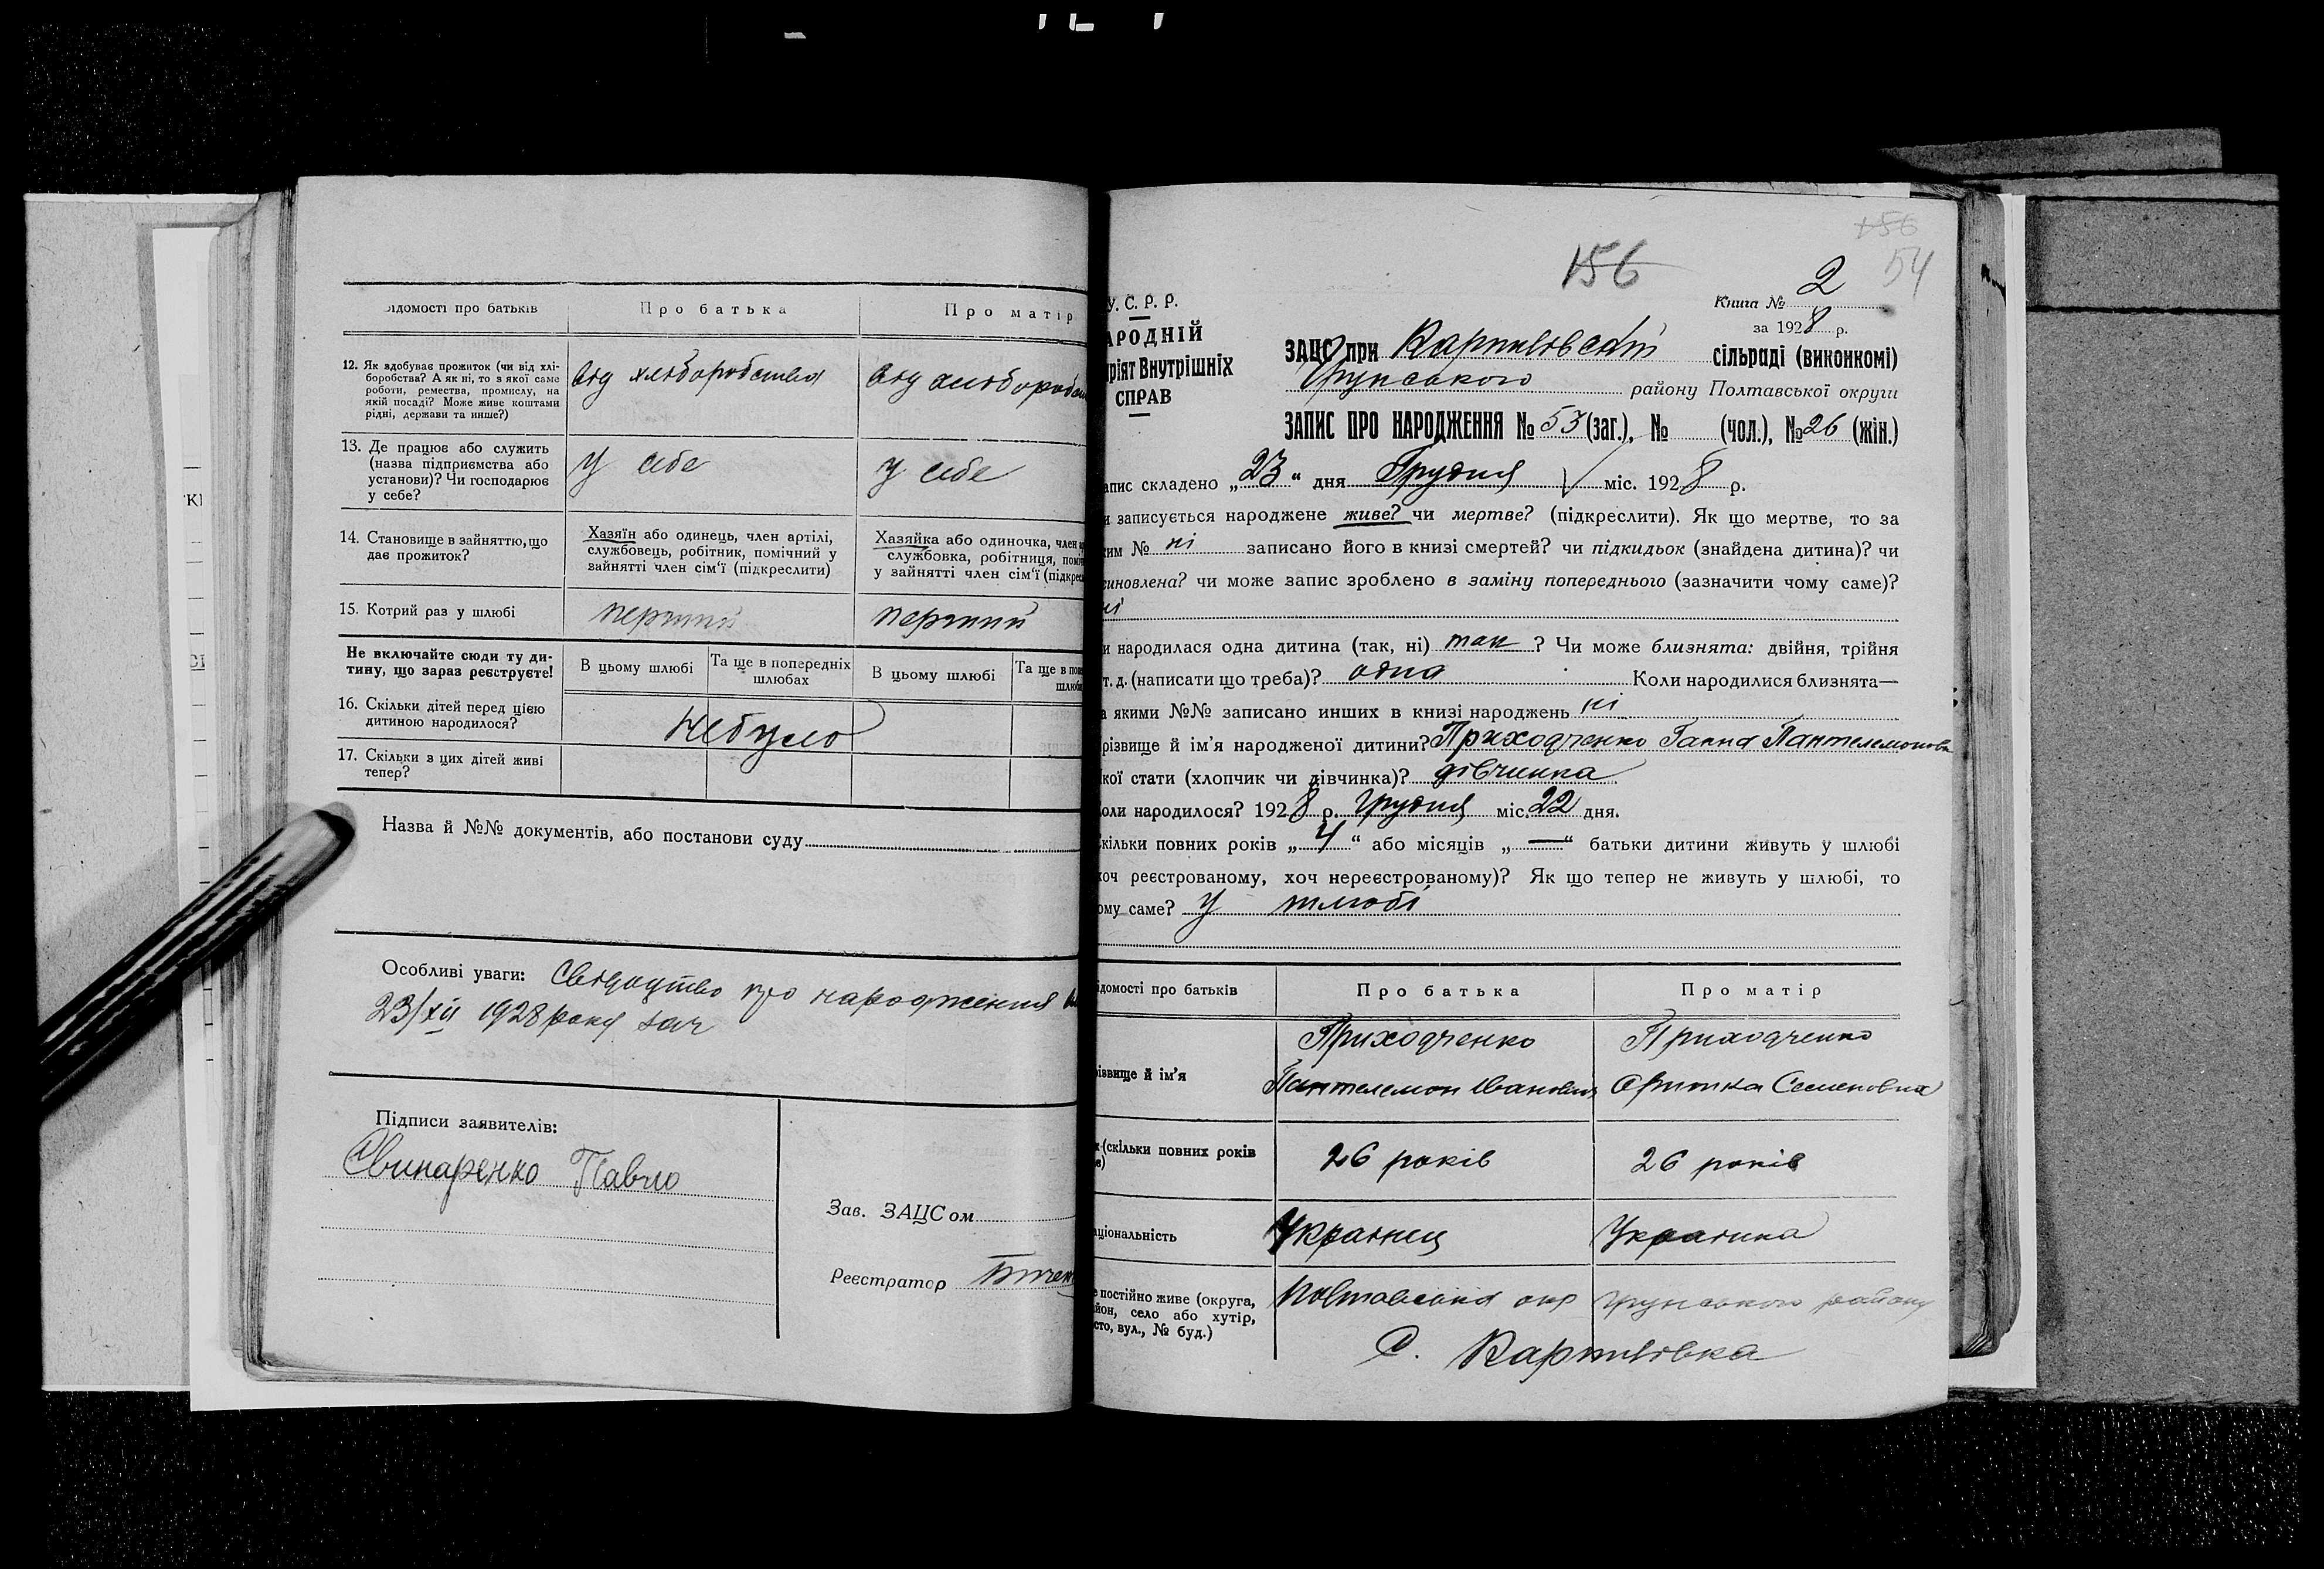 ідомості про батьків
Про батька
Про матір
12. Як здобуває прожиток (чи від хлі-
боробства? А як ні, то з якої саме
роботи, ремества, промислу, на
якій посаді? Може живе коштами
рідні, держави та инше?)
від хліборобства
від хлібороб
13. Де працює або служить
(назва підприємства або
установи)? Чи господарює
у себе?
у себе
у себе
14. Становище в зайняттю, що
дає прожиток?
Хазяїн або одинець, член артілі,
службовець, робітник, помічний у
зайнятті член сім'ї (підкреслити)
Хазяйка або одиночка, член
службовка, робітниця, поміч
у зайнятті член сім'ї (підкрес
15. Котрий раз у шлюбі
перший
перший
Не включайте сюди ту ди-
тину, що зараз реєструєте!
В цьому шлюбі
Та ще в попередніх
шлюбах
В цьому шлюбі
Та ще в поп
шлюб
16. Скільки дітей перед цією
дитиною народилося?
небуло
17. Скільки з цих дітей живі
тепер?
Назва й №№ документів, або постанови суду
Особливі уваги: Свідоцтво про народження
23/XII 1928 року
Підписи заявителів:
Свинаренко Павло
Зав. ЗАЦСом
Реєстратор
156
156
54
У. С. Р. Р.
АРОДНІЙ
ріят Внутрішніх
СПРАВ
Книга № 2
за 1928 р.
ЗАЦС при Карпилівській сільраді (виконкомі)
Грунського району Полтавської округи
ЗАПИС ПРО НАРОДЖЕННЯ № 53 (заг.), № (чол.), № 26 (жін.)
апис складено „23“ дня Грудня міс. 1928 р.
и записується народжене живе? чи мертве? (підкреслити). Як що мертве, то за
ким № ні записано його в книзі смертей? чи підкидьок (знайдена дитина)? чи
синовлена? чи може запис зроблено в заміну попереднього (зазначити чому саме)?
ні
и народилася одна дитина (так, ні) так ? Чи може близнята: двійня, трійня
т. д. (написати що треба)? одна Коли народилися близнята—
а якими №№ записано инших в книзі народжень ні
різвище й ім'я народженої дитини? Приходченко Ганна Пантелемоновн
кої стати (хлопчик чи дівчинка)? дівчинка
оли народилося? 1928 р. грудня міс. 22 дня.
кільки повних років „4“ або місяців „—“ батьки дитини живуть у шлюбі
хоч реєстрованому, хоч нереєстрованому)? Як що тепер не живуть у шлюбі, то
ому саме? у шлюбі
ідомості про батьків
Про батька
Про матір
різвище й ім'я
Приходченко
Пантелемон Іванович
Приходченко
Оришка Семеновна
(скільки повних років
є)
26 років
26 років
аціональність
Українец
Українка
е постійно живе (округа,
йон, село або хутір,
сто, вул., № буд.)
Полтавська окр
грунського району
С. Карпилівка